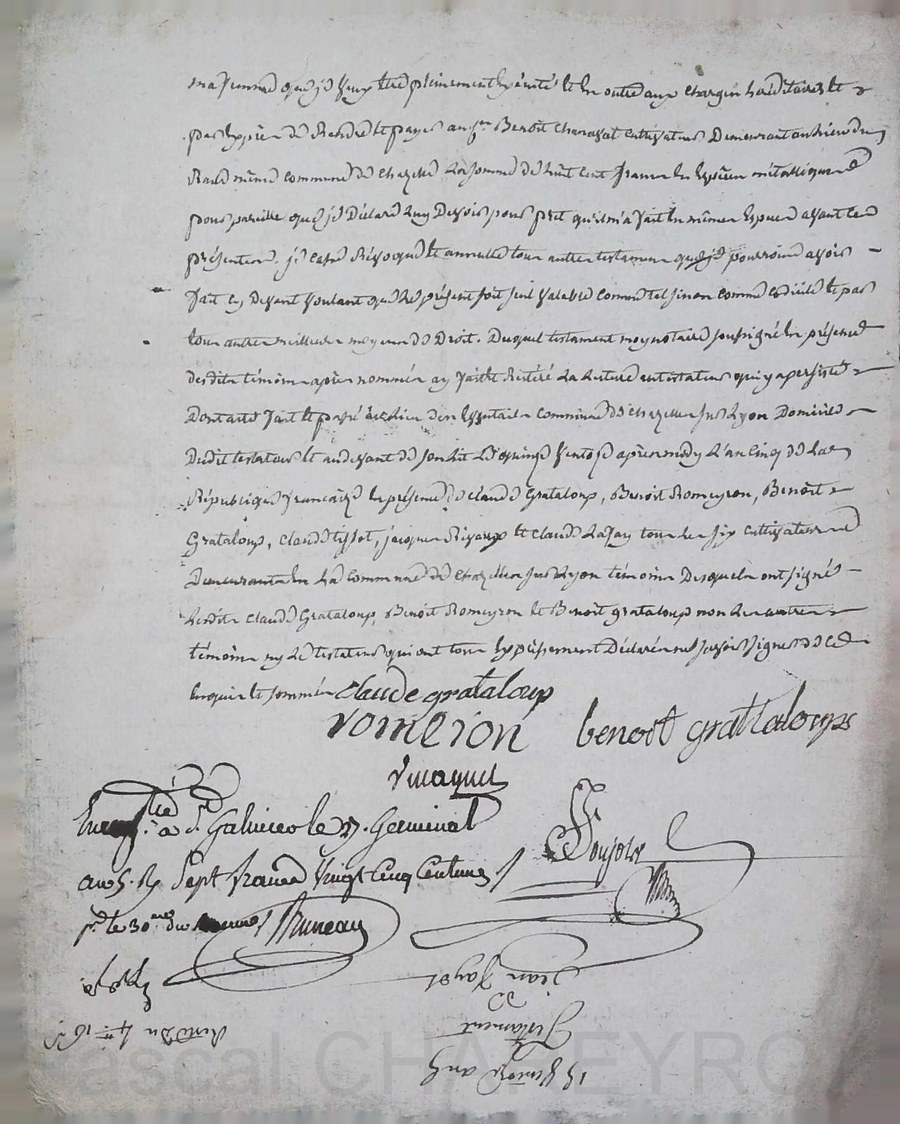 que je veux être pleinement exécuté et en outre aux charges héréditaires et
par exprès de rendre et payer au Sr Benoit cultivateur demeurant au lieu du
même commune de Chazelle la somme de huit cent francs en espèces métalliques
pour pareille que je déclare luy devoir pour prêt qu'il m'a fait en même espèce avant ces
présentes. je casse révoque et annulle tous autres testaments que je pourrois avoir
fait cy devant voulant que le présent soit seul valable comme tel sinon comme codicile et par
tous autres meilleurs moyens de Droit. Duquel testament moy notaire soussigné en présence
desdits témoins après nommés ay fait et réitéré la lecture au testateur qui y a persisté
Dont acte fait et passé au lieu commune de Chazelles sur Lyon Domicile
Dudit testateur et au devant de son lit le quinze ventose après midy l'an cinq de la
République française en présence de Claude Grataloup, Benoit Romeyron, Benoit
Grataloup, Claude tissot, jacques et Claude tous les six cultivateurs
Demeurants en la commune de Chazelles sur Lyon témoins Desquels ont signé
lesdits Claude Grataloup, Benoit Romeyron et Benoit grataloup non les autres
témoins ny le testateur qui ont tous expressément Déclaré ne savoir signer de ce
enquis et sommés claude grataloup
romeion benoit grattaloups
Enregtré à St Galmier le 27 Germinal
an 5. R sept francs vingt cinq centimes
pr le 30me du Bruneau
jean
Testament
15 ventose an 5